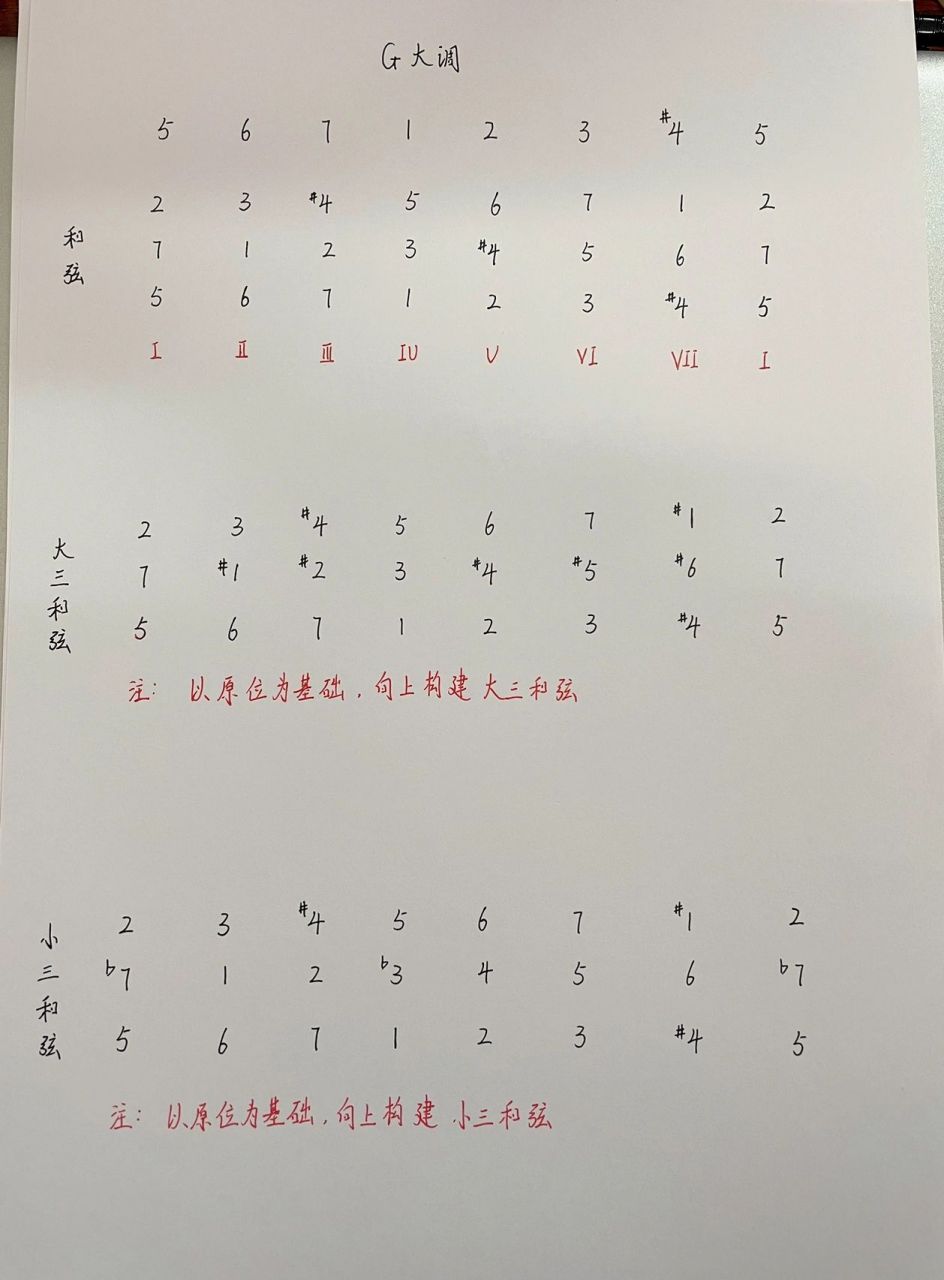 G大调
5 6 7 1 2 3 #4 5
和弦
2 3 #4 5 6 7 1 2
7 1 2 3 #4 5 6 7
5 6 7 1 2 3 #4 5
I II III IV V VI VII I
大三和弦
2 3 #4 5 6 7 #1 2
7 #1 #2 3 #4 #5 #6 7
5 6 7 1 2 3 #4 5
注: 以原位为基础,向上构建大三和弦
小三和弦
2 3 #4 5 6 7 #1 2
b7 1 2 b3 4 5 6 b7
5 6 7 1 2 3 #4 5
注: 以原位为基础,向上构建小三和弦